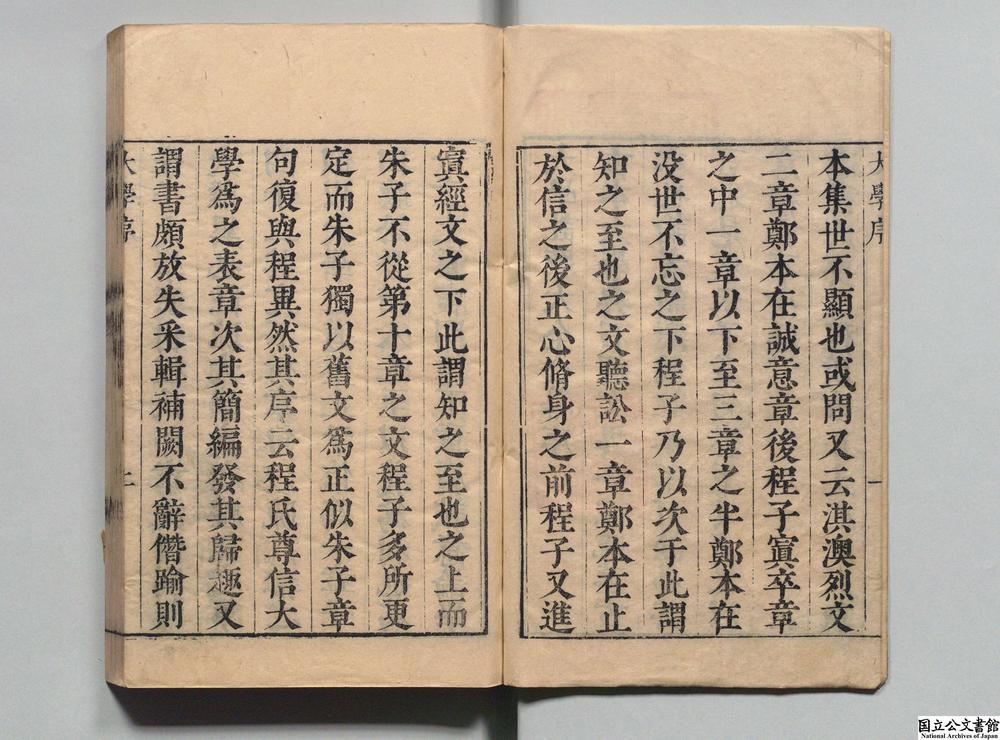 大學序
一
本集世不顯也或問又云淇澳烈文
二章鄭本在誠意章後程子寘卒章
之中一章以下至三章之半鄭本在
没世不忘之下程子乃以次于此謂
知之至也之文聽訟一章鄭本在止
於信之後正心脩身之前程子又進
寘經文之下此謂知之至也之上而
朱子不從第十章之文程子多所更
定而朱子獨以舊文爲正似朱子章
句復與程異然其序云程氏尊信大
學爲之表章次其簡編發其歸趣又
謂書頗放失采輯補闕不辭僭踰則
大學序
国立公文書館
National Archives of Japan